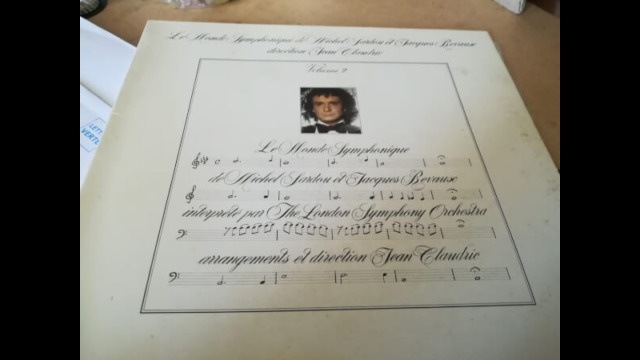 Le Monde Symphonique de Michel Sardou et Jacques Revaux
direction Jean Claudric
Volume 2
Le Monde Symphonique
de Michel Sardou et Jacques Revaux
interprété par The London Symphony Orchestra
arrangements et direction Jean Claudric
LETT
VERTE